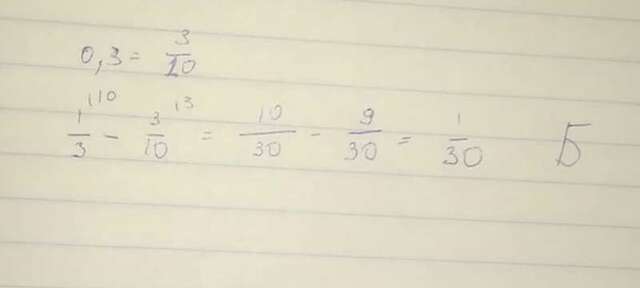 0,3 = 3/10
1/3 ⁽¹⁰ - 3/10 ⁽³ = 10/30 - 9/30 = 1/30 Б